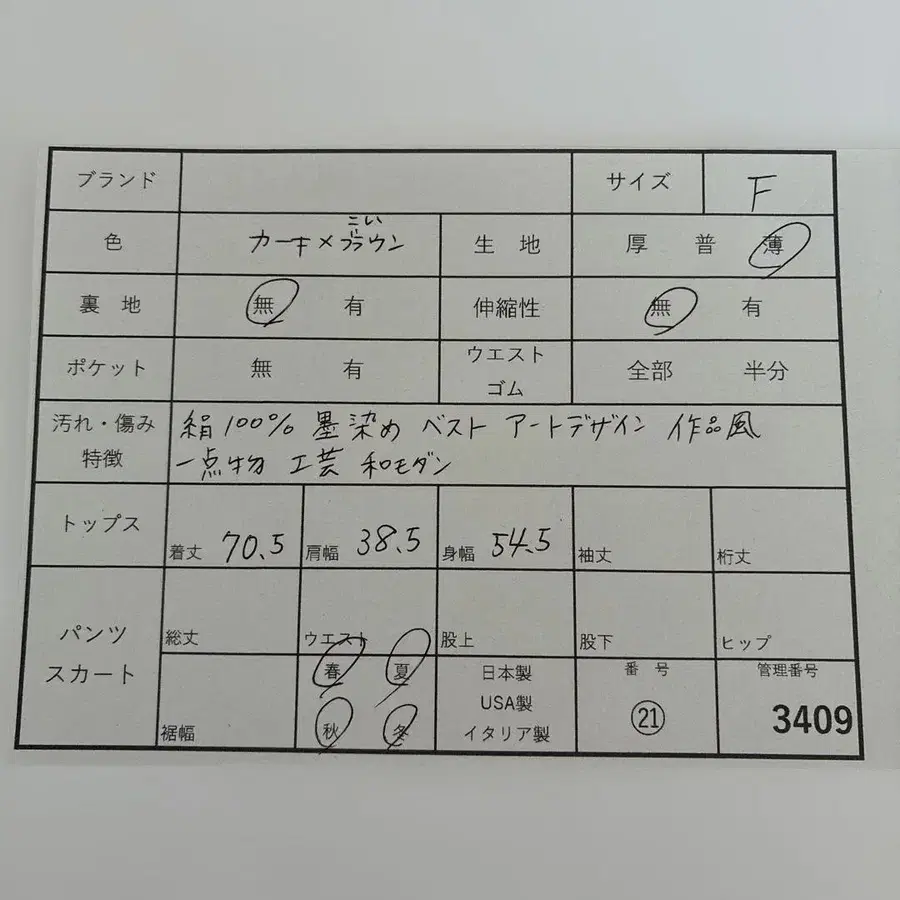 ブランド サイズ F
色 カーキ×ブラウン こい 生 地 厚 普 薄
裏 地 無 有 伸縮性 無 有
ポケット 無 有 ウエスト ゴム 全部 半分
汚れ・傷み 特徴
絹100% 墨染め ベスト アートデザイン 作品風
一点物 工芸 和モダン
トップス 着丈 70.5 肩幅 38.5 身幅 54.5 袖丈 裄丈
パンツ スカート 総丈 ウエスト 股上 股下 ヒップ
裾幅 春 夏 秋 冬 日本製 USA製 イタリア製 番 号 ㉑ 管理番号 3409